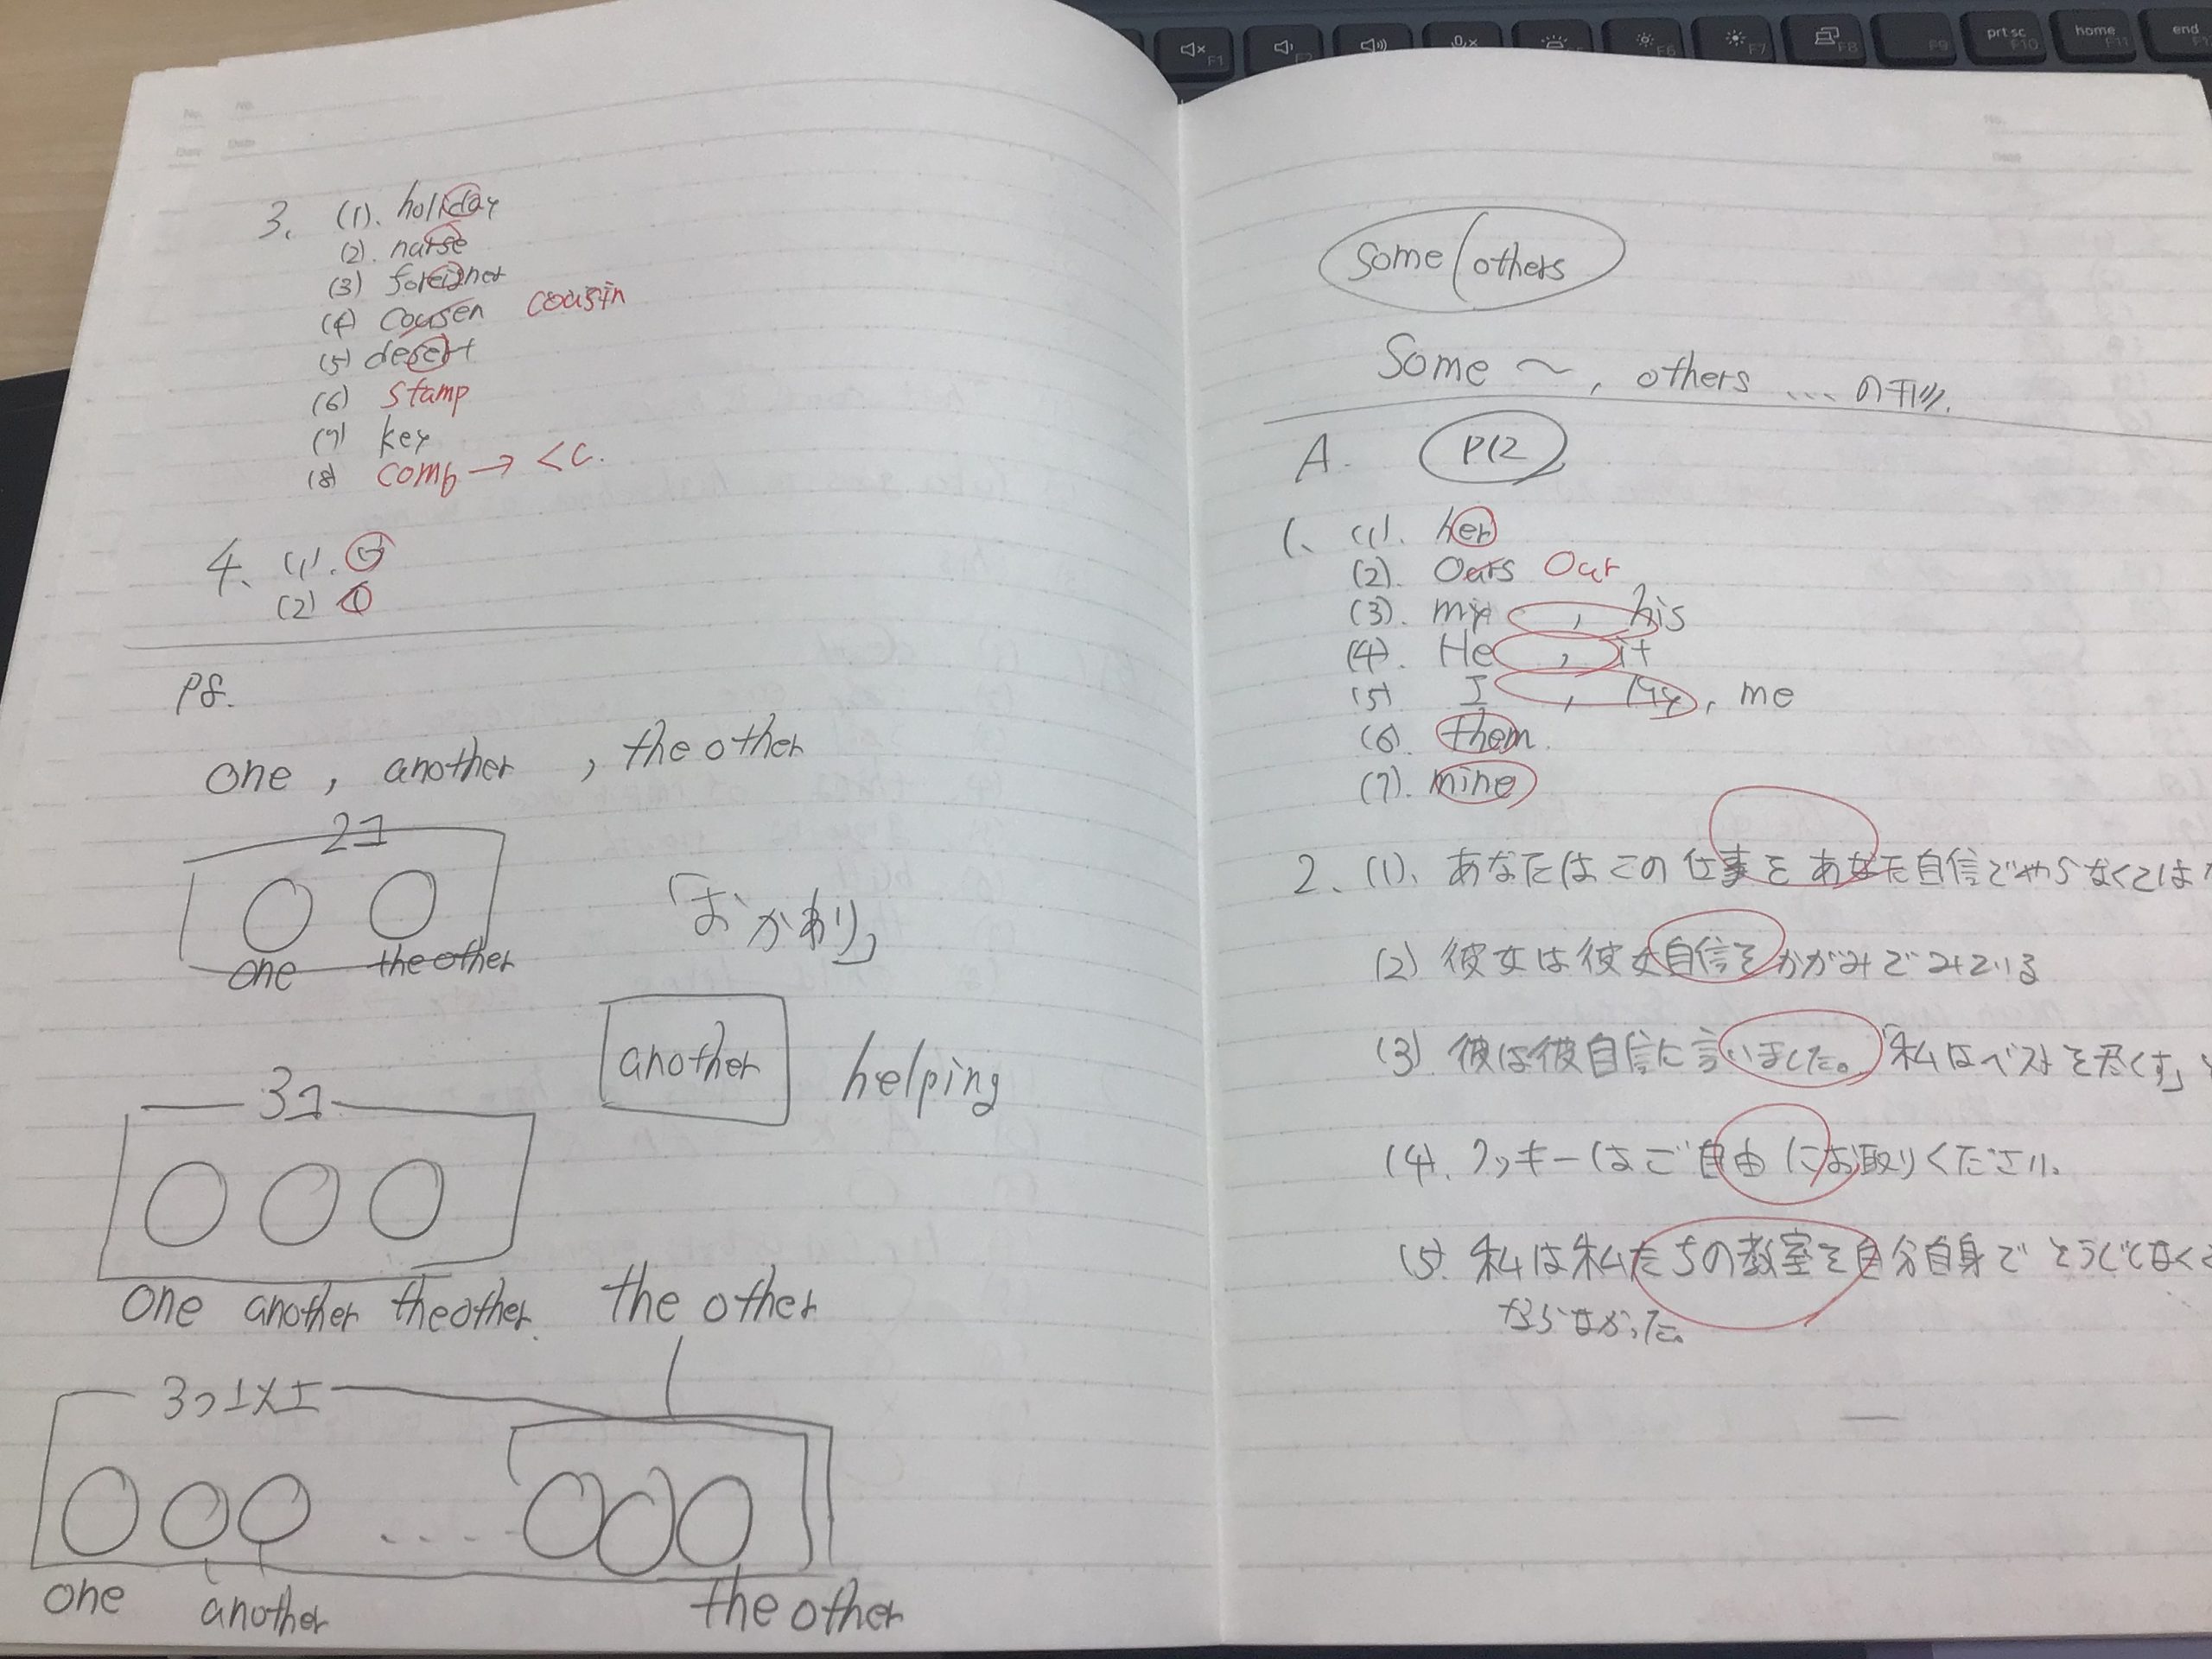 No.
Date
No.
Date
3. (1). holiday
(2). nurse
(3) foreigner
(4) cousen cousin
(5) desert
(6) stamp
(7) key
(8) comb → くし.
4. (1).
(2)
P8.
one , another , the other
2コ
one the other
「おかわり」
another helping
3コ
one another the other.
the other
3つ以上
one another the other
No.
Date
some/others
Some 〜, others ... の形.
A. P12
1. (1). her
(2). Ours Our
(3). my , his
(4). He , it
(5) I , My, me
(6). them.
(7). mine
2. (1). あなたはこの仕事をあなた自信でやらなくては
(2) 彼女は彼女自信をかがみでみている
(3). 彼は彼自信に言いました。「私はベストを尽くす」
(4). クッキーはご自由にお取りください。
(5). 私は私たちの教室を自分自身でそうじしなくて
ならなかった。
F1
F6
F7
F8
F9
prt sc F10
home F11
end